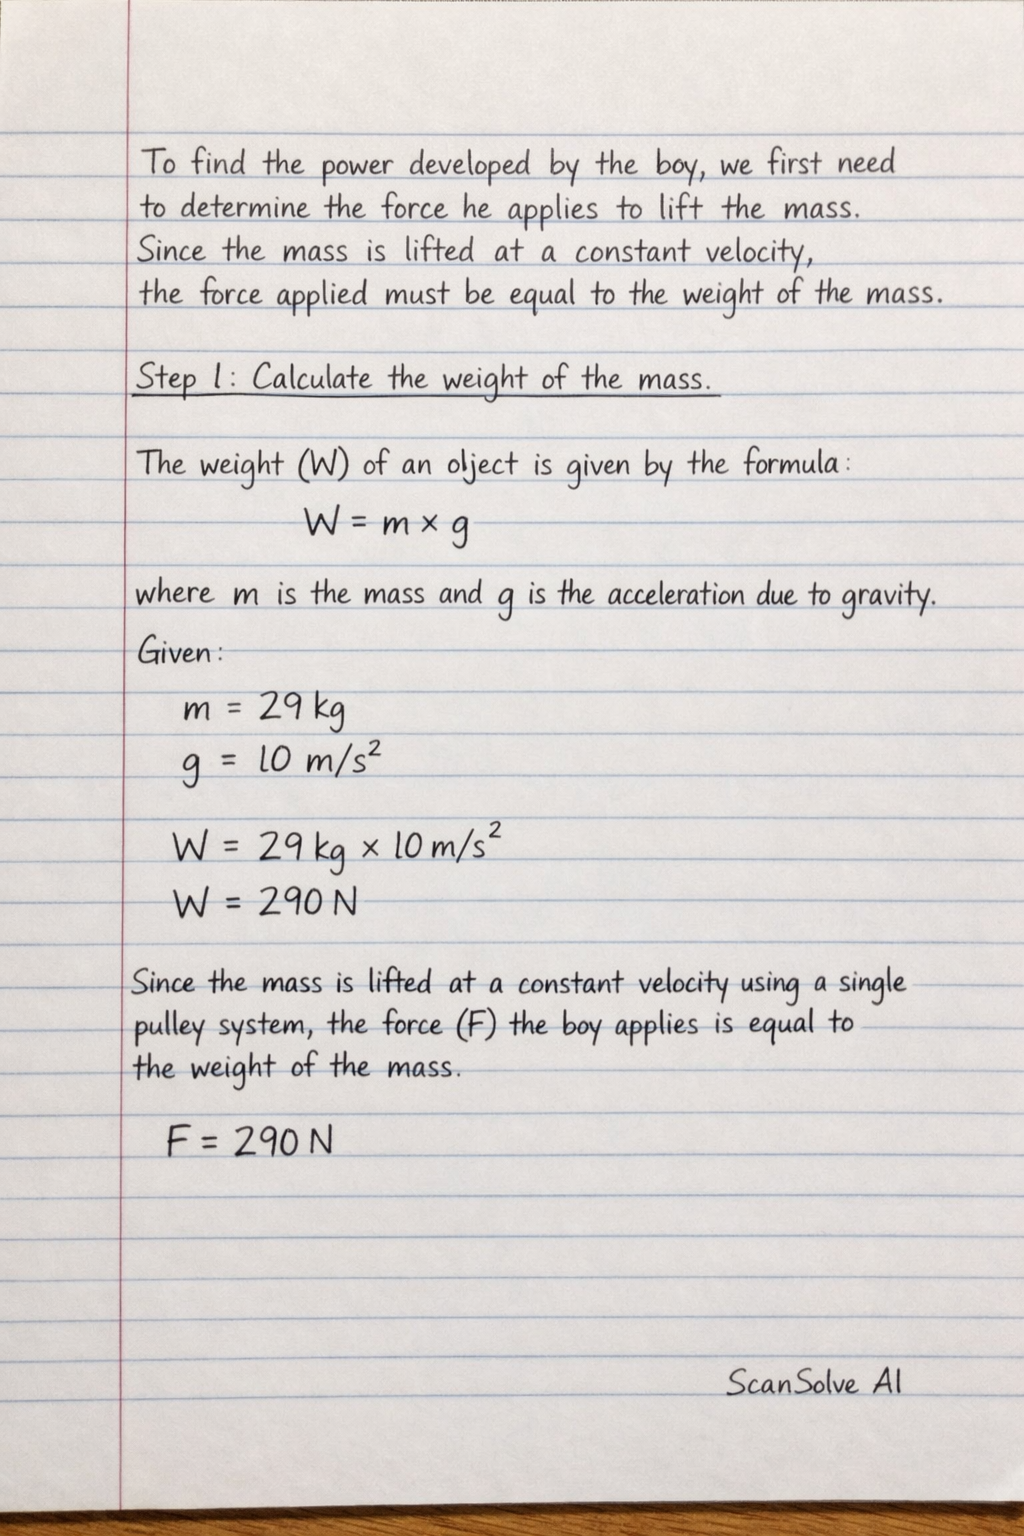 To find the power developed by the boy, we first need
to determine the force he applies to lift the mass.
Since the mass is lifted at a constant velocity,
the force applied must be equal to the weight of the mass.
Step 1: Calculate the weight of the mass.
The weight (W) of an olject is given by the formula:
W = m × g
where m is the mass and g is the acceleration due to gravity.
Given:
m = 29 kg
g = 10 m/s²
W = 29 kg × 10 m/s²
W = 290 N
Since the mass is lifted at a constant velocity using a single
pulley system, the force (F) the boy applies is equal to
the weight of the mass.
F = 290 N
ScanSolve AI